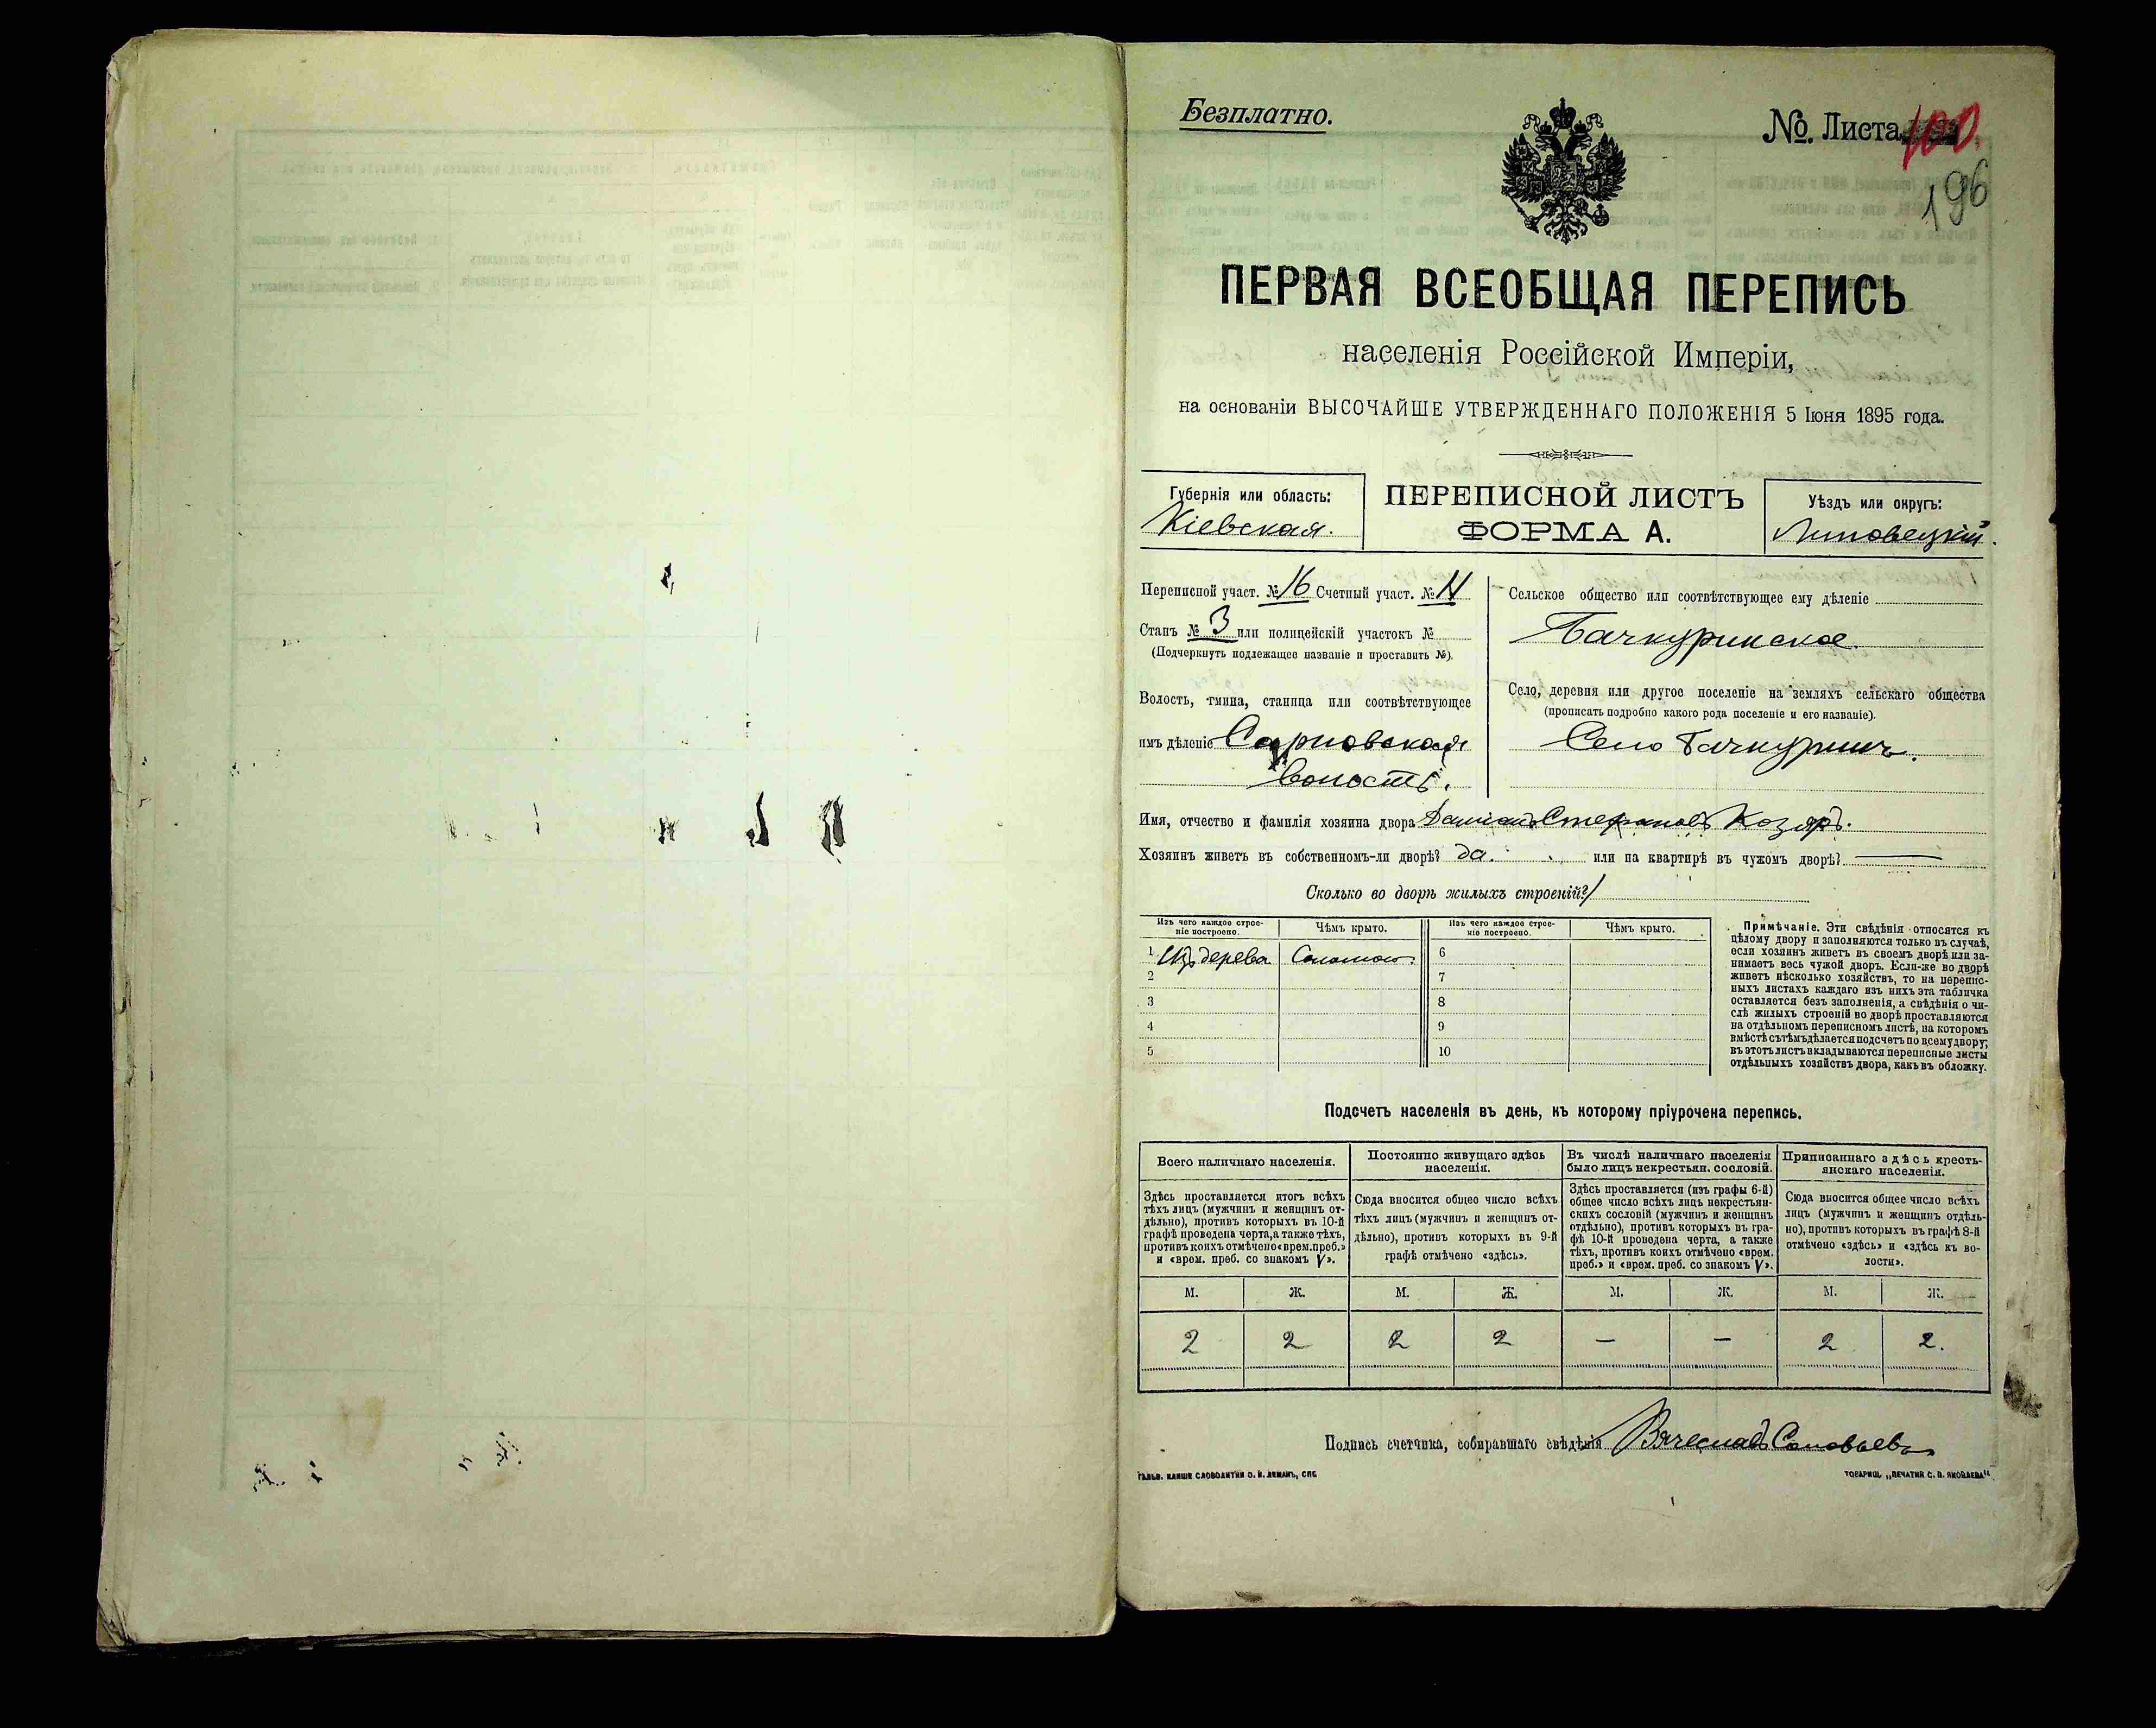 Безплатно.
№. Листа 100.
196
ПЕРВАЯ ВСЕОБЩАЯ ПЕРЕПИСЬ
населенія Россійской Имперіи,
на основаніи ВЫСОЧАЙШЕ УТВЕРЖДЕННАГО ПОЛОЖЕНІЯ 5 Іюня 1895 года.
Губернія или область:
Кіевская.
ПЕРЕПИСНОЙ ЛИСТЪ
ФОРМА А.
Уѣздъ или округъ:
Липовецкій.
Переписной участ. № 16 Счетный участ. № 11
Станъ № 3 или полицейскій участокъ №
(Подчеркнуть подлежащее названіе и проставить №).
Волость, гмина, станица или соотвѣтствующее
имъ дѣленіе Сарновская
волость.
Сельское общество или соотвѣтствующее ему дѣленіе
Бачкуринское.
Село, деревня или другое поселеніе на земляхъ сельскаго общества
(прописать подробно какого рода поселеніе и его названіе).
Село Бачкуринъ.
Имя, отчество и фамилія хозяина двора Даміанъ Стефановъ Козяръ.
Хозяинъ живетъ въ собственномъ-ли дворѣ? да. или на квартирѣ въ чужомъ дворѣ? —
Сколько во дворѣ жилыхъ строеній? 1
Изъ чего каждое строе-
ніе построено.
Чѣмъ крыто.
Изъ чего каждое строе-
ніе построено.
Чѣмъ крыто.
1 Изъ дерева Соломою. 6
2 7
3 8
4 9
5 10
Примѣчаніе. Эти свѣдѣнія относятся къ
цѣлому двору и заполняются только въ случаѣ,
если хозяинъ живетъ въ своемъ дворѣ или за-
нимаетъ весь чужой дворъ. Если-же во дворѣ
живетъ нѣсколько хозяйствъ, то на перепис-
ныхъ листахъ каждаго изъ нихъ эта табличка
оставляется безъ заполненія, а свѣдѣнія о чи-
слѣ жилыхъ строеній во дворѣ проставляются
на отдѣльномъ переписномъ листѣ, на которомъ
вмѣстѣ съ тѣмъ дѣлается подсчетъ по всему двору;
въ этотъ листъ вкладываются переписные листы
отдѣльныхъ хозяйствъ двора, какъ въ обложку.
Подсчетъ населенія въ день, къ которому пріурочена перепись.
Всего наличнаго населенія.
Здѣсь проставляется итогъ всѣхъ
тѣхъ лицъ (мужчинъ и женщинъ от-
дѣльно), противъ которыхъ въ 10-й
графѣ проведена черта, а также тѣхъ,
противъ коихъ отмѣчено «врем. преб.»
и «врем. преб. со знакомъ V».
Постоянно живущаго здѣсь
населенія.
Сюда вносится общее число всѣхъ
тѣхъ лицъ (мужчинъ и женщинъ от-
дѣльно), противъ которыхъ въ 9-й
графѣ отмѣчено «здѣсь».
Въ числѣ наличнаго населенія
было лицъ некрестьян. сословій.
Здѣсь проставляется (изъ графы 6-й)
общее число всѣхъ лицъ некрестьян-
скихъ сословій (мужчинъ и женщинъ
отдѣльно), противъ которыхъ въ гра-
фѣ 10-й проведена черта, а также
тѣхъ, противъ коихъ отмѣчено «врем.
преб.» и «врем. преб. со знакомъ V».
Приписаннаго здѣсь кресть-
янскаго населенія.
Сюда вносится общее число всѣхъ
лицъ (мужчинъ и женщинъ отдѣль-
но), противъ которыхъ въ графѣ 8-й
отмѣчено «здѣсь» и «здѣсь къ во-
лости».
М. Ж. М. Ж. М. Ж. М. Ж.
2 2 2 2 — — 2 2.
Подпись счетчика, собиравшаго свѣдѣнія Вячеславъ Соловьевъ
ГАЛЬВ. КЛИШЕ СЛОВОЛИТНИ О. И. ЛЕМАНЪ, СПБ.
ТОВАРИЩ. „ПЕЧАТНЯ С. П. ЯКОВЛЕВА"